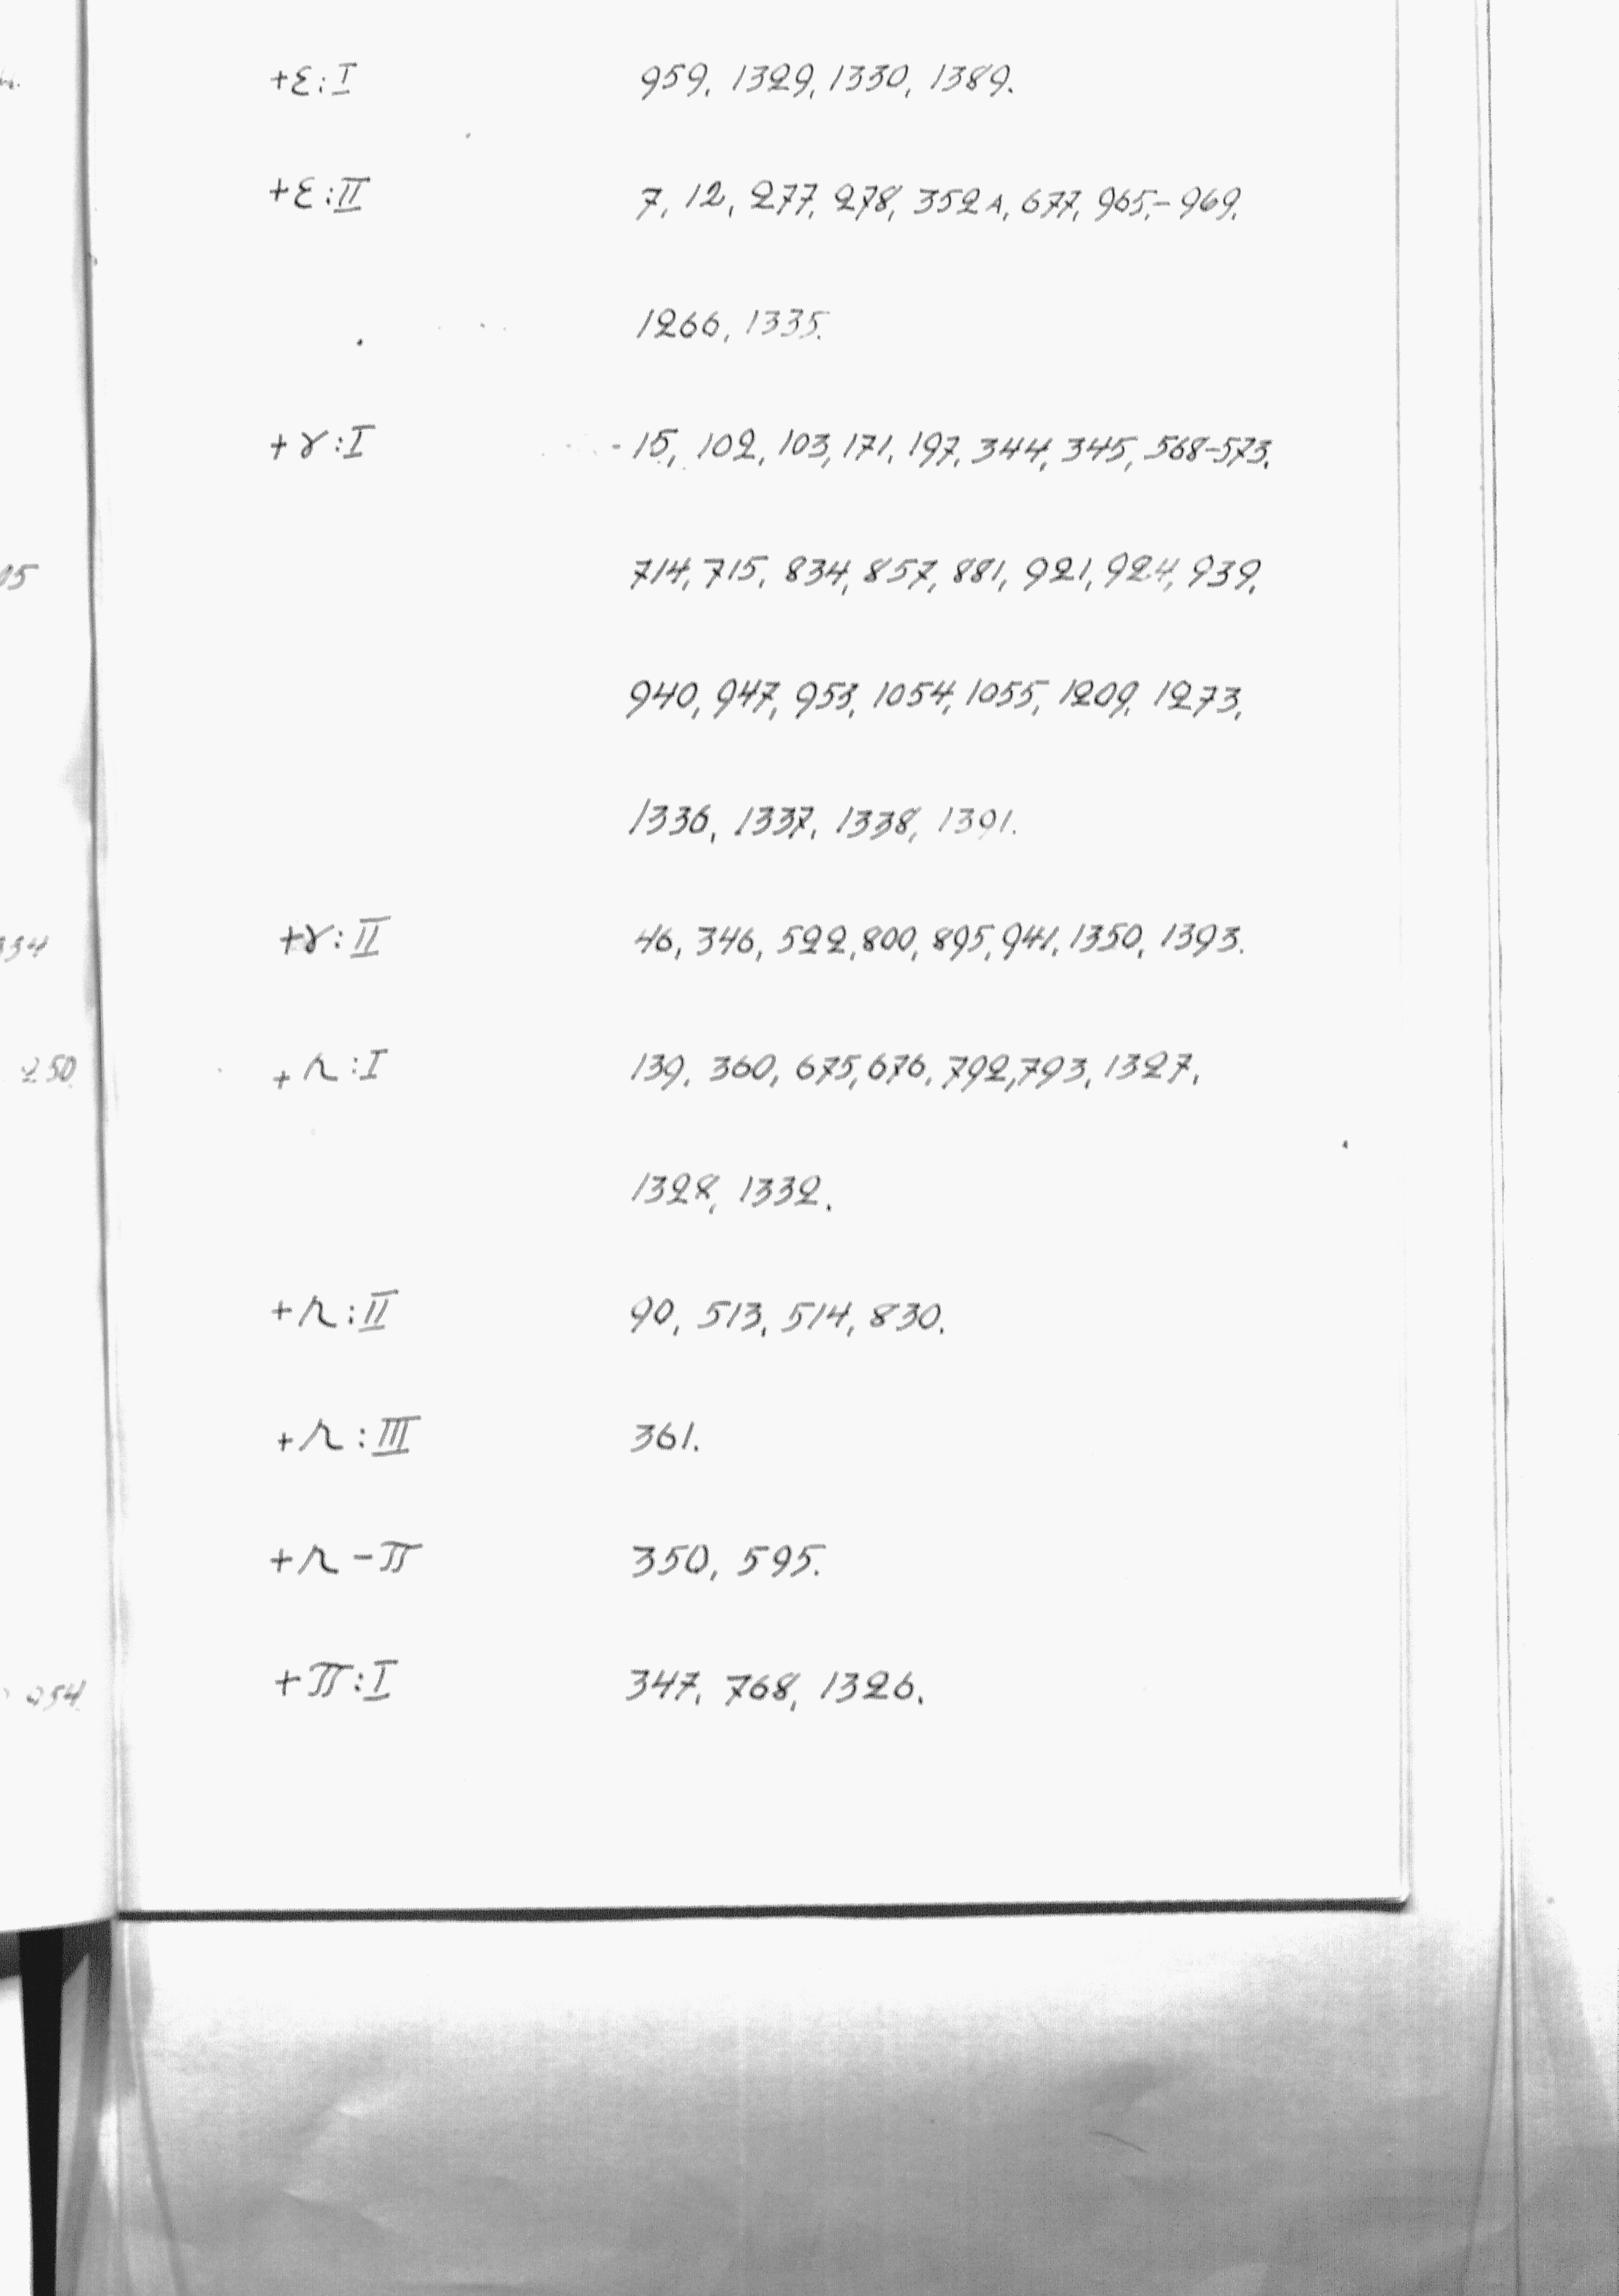 +ε:I 959, 1329, 1330, 1389.
+ε:II 7, 12, 277, 278, 352A, 677, 965,-969,
1266, 1335.
+γ:I 15, 102, 103, 171, 197, 344, 345, 568-573,
714, 715, 834, 857, 881, 921, 924, 939,
940, 947, 953, 1054, 1055, 1209, 1273,
1336, 1337, 1338, 1391.
+γ:II 46, 346, 522, 800, 895, 941, 1350, 1393.
+r:I 139, 360, 675, 676, 792, 793, 1327,
1328, 1332.
+r:II 90, 513, 514, 830.
+r:III 361.
+r-π 350, 595.
+π:I 347, 768, 1326.